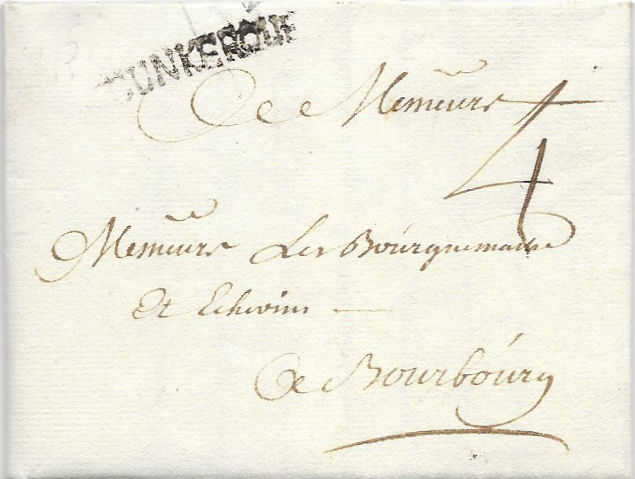 DUNKERQUE
De Messieurs
4
Messieurs Les Bourguemaitre
Et Echevins
De Bourbourg